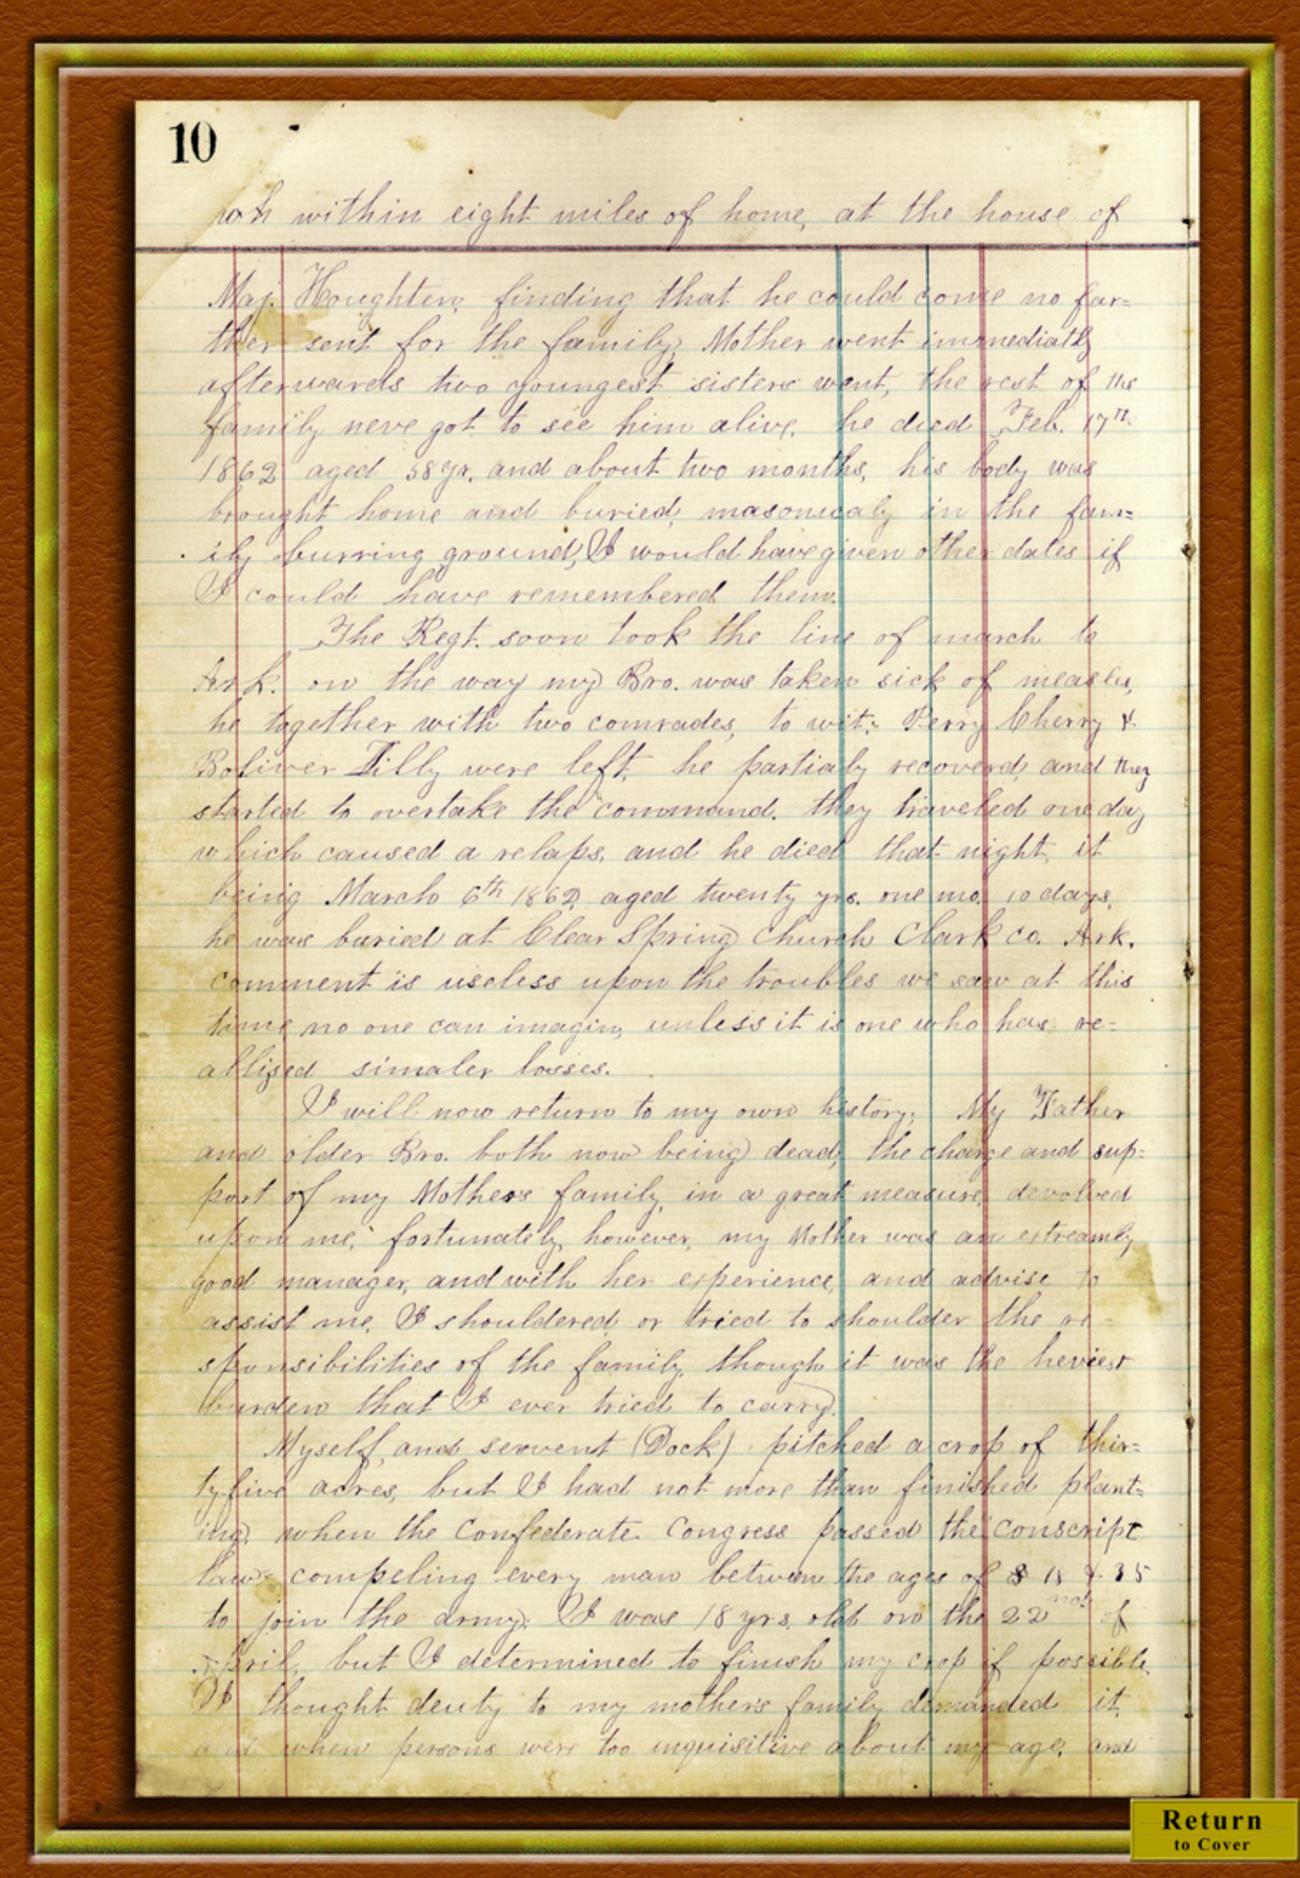 10
within eight miles of home, at the house of
Maj. Houghten, finding that he could come no far=
ther sent for the family, Mother went immediatly
afterwards two youngest sisters went, the rest of the
family neve got to see him alive. he died Feb. 17th
1862 aged 58 yr. and about two months, his body was
brought home and buried, masonicaly in the fam=
ily burring ground, I would have given other dates if
I could have remembered them.
The Regt. soon took the line of march to
Ark. on the way my Bro. was taken sick of measles,
he together with two comrades, to wit; Perry Cherry &
Boliver Tilly were left, he partialy recoverd, and they
started to overtake the command. they traveled one day
which caused a relaps, and he died that night, it
being March 6th 1862, aged twenty yrs. one mo. 10 days,
he was buried at Clear Spring Church Clark co. Ark.
comment is useless upon the troubles we saw at this
time, no one can imagin, unless it is one who has re=
allized simaler losses.
I will now return to my own history; My Father
and older Bro. both now being dead, the charge and sup=
port of my Mothers family, in a great measure, devolved
upon me, fortunately, however, my Mother was an extreamly
good manager, and with her experience, and advise to
assist me, I shouldered, or tried to shoulder the re-
sponsibilities of the family, though it was the heviest
burden that I ever tried to carry.
Myself, and servent (Dock) pitched a crop of thir=
tyfive acres, but I had not more than finished plant=
ing, when the Confederate Congress passed the conscript
law= compeling every man between the ages of 18 & 35
to join the army. I was 18 yrs. old on the 22nd of
April, but I determined to finish my crop if possible,
I thought deuty to my mother's family demanded it,
and when persons were too inquisitive about my age, and
Return
to Cover